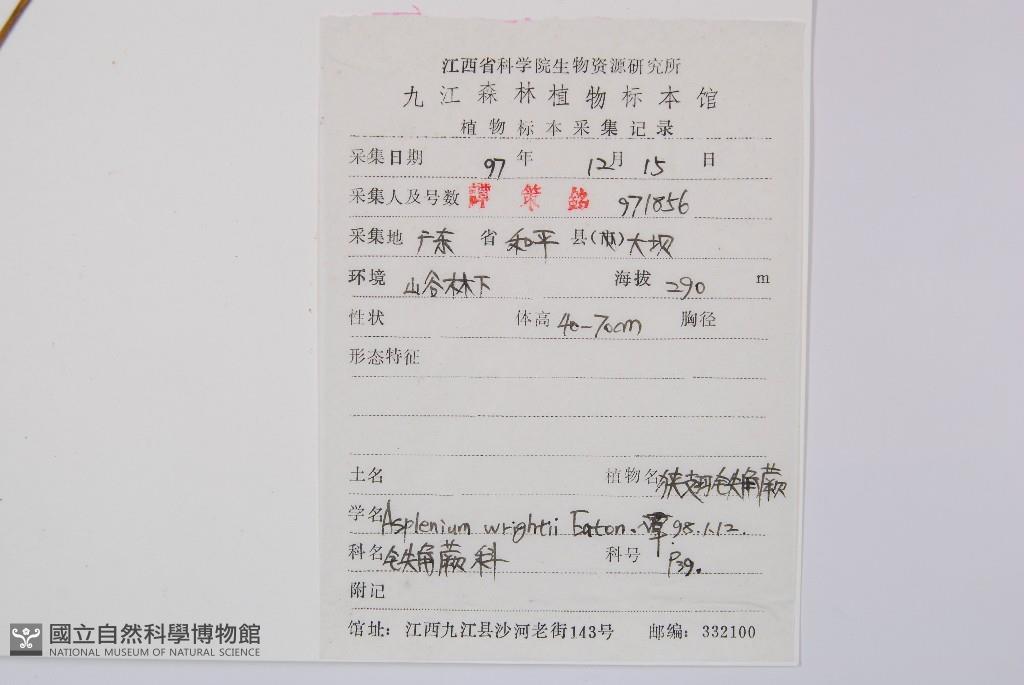 江西省科学院生物资源研究所
九江森林植物标本馆
植物标本采集记录
采集日期 97 年 12月 15 日
采集人及号数 譚策銘 971856
采集地 广东 省 和平 县(市) 大坝
环境 山谷林下 海拔 290 m
性状 体高 40-70cm 胸径
形态特征
土名 植物名 狭翅铁角蕨
学名 Asplenium wrightii Eaton. 覃 98.1.12.
科名 铁角蕨科 科号 P39.
附记
馆址：江西九江县沙河老街143号 邮编：332100
國立自然科學博物館
NATIONAL MUSEUM OF NATURAL SCIENCE